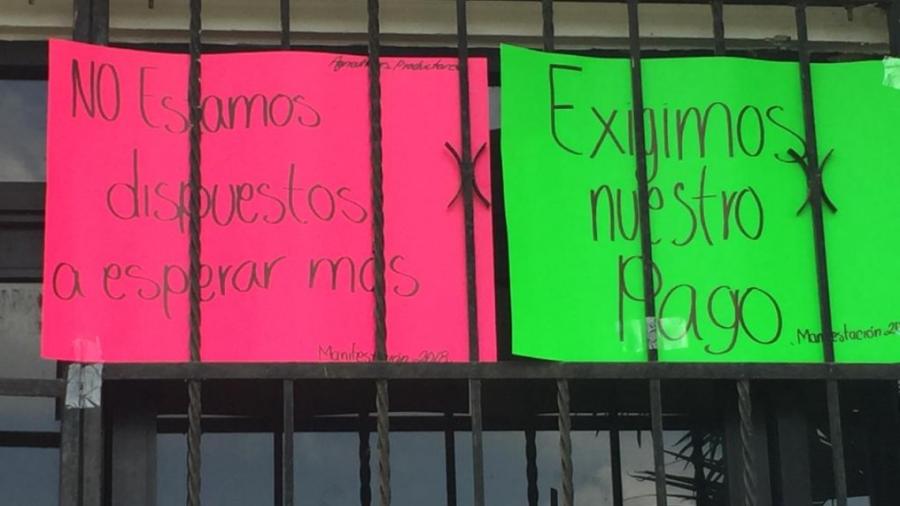 Agricultores Productores
NO Estamos
dispuestos
a esperar más
Manifestación 2018
Exigimos
nuestro
Pago
Manifestación 20